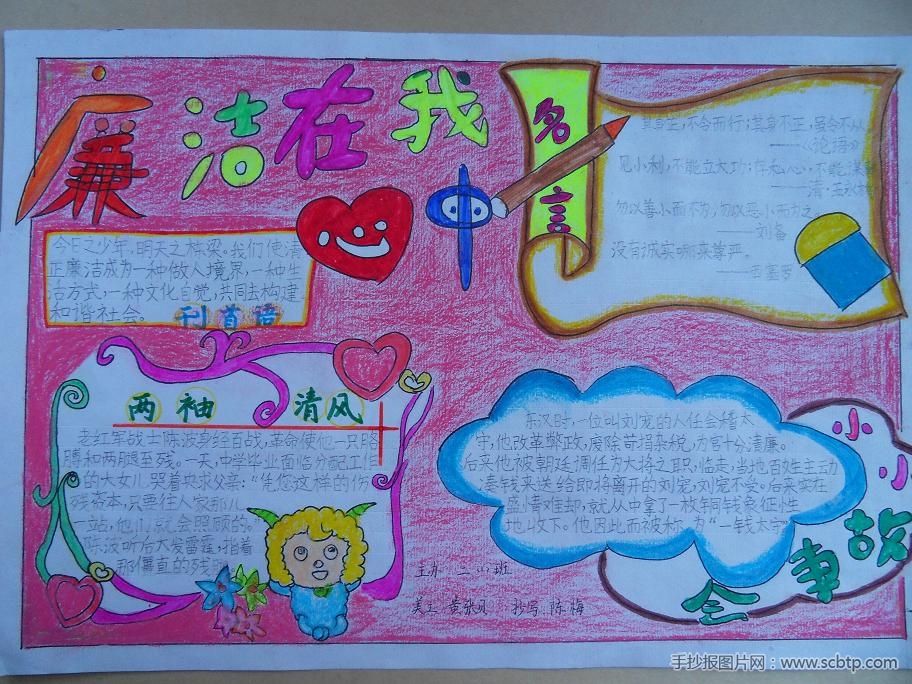 廉洁在我
心中
今日之少年,明天之栋梁。我们使清
正廉洁成为一种做人境界,一种生
活方式,一种文化自觉,共同去构建
和谐社会。
刊首语
名言
其身正,不令而行;其身不正,虽令不从
——《论语》
见小利,不能立大功;存私心,不能谋
——清·王永
勿以善小而不为,勿以恶小而为之。
——刘备
没有诚实哪来尊严。
——西塞罗
两袖 清风
老红军战士陈波身经百战,革命使他一只胳
膊和两腿至残。一天,中学毕业面临分配工作
的大女儿哭着央求父亲:“凭您这样的伤
残资本,只要往人家那儿
一站,他们就会照顾的。”
陈波听后大发雷霆,指着
那僵直的残
东汉时,一位叫刘宠的人任会稽太
守,他改革弊政,废除苛捐杂税,为官十分清廉。
后来他被朝廷调任为大将之职,临走,当地百姓主动
凑钱来送给即将离开的刘宠,刘宠不受。后来实在
盛情难却,就从中拿了一枚铜钱象征性
地收下。他因此而被称为“一钱太守”
小小
故事会
主办 三(1)班
美工 黄张贝 抄写 陈梅
手抄报图片网:www.scbtp.com